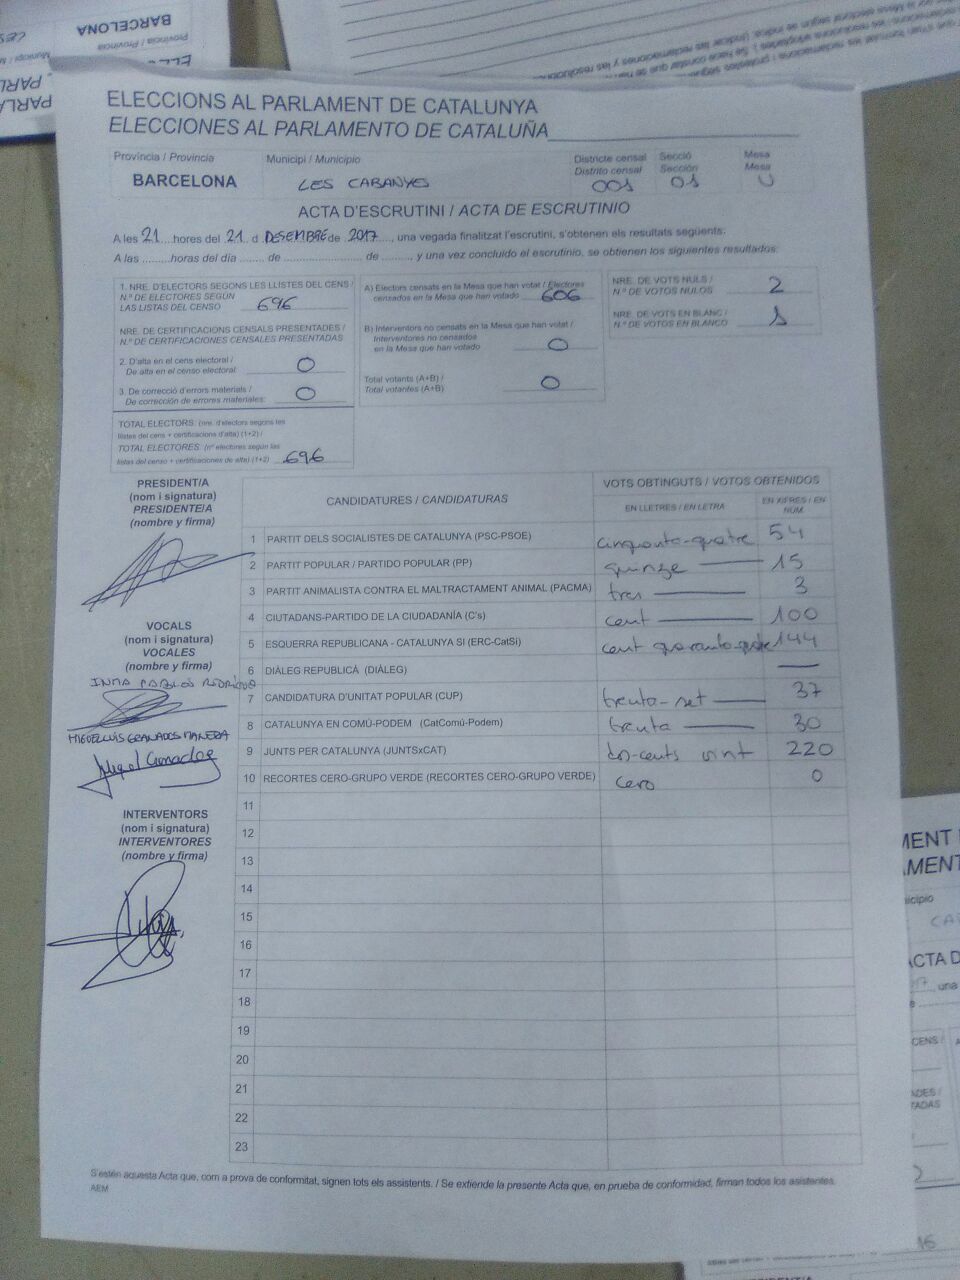 BARCELONA
Província / Provincia
ELECCIONS AL PARLAMENT DE CATALUNYA
ELECCIONES AL PARLAMENTO DE CATALUÑA
Província / Provincia
Municipi / Municipio
Districte censal
Distrito censal
Secció
Sección
Mesa
Mesa
BARCELONA
LES CABANYES
001
01
U
ACTA D'ESCRUTINI / ACTA DE ESCRUTINIO
A les 21 hores del 21 d DESEMBRE de 2017, una vegada finalitzat l'escrutini, s'obtenen els resultats següents:
A las ......... horas del día ....... de ..................... de ........, y una vez concluido el escrutinio, se obtienen los siguientes resultados:
1. NRE. D'ELECTORS SEGONS LES LLISTES DEL CENS /
N.º DE ELECTORES SEGÚN
LAS LISTAS DEL CENSO 696
NRE. DE CERTIFICACIONS CENSALS PRESENTADES /
N.º DE CERTIFICACIONES CENSALES PRESENTADAS
2. D'alta en el cens electoral /
De alta en el censo electoral: 0
3. De correcció d'errors materials /
De corrección de errores materiales: 0
TOTAL ELECTORS: (nre. d'electors segons les
llistes del cens + certificacions d'alta) (1+2) /
TOTAL ELECTORES: (nº electores según las
listas del censo + certificaciones de alta) (1+2) 696
A) Electors censats en la Mesa que han votat / Electores
censados en la Mesa que han votado 606
B) Interventors no censats en la Mesa que han votat /
Interventores no censados
en la Mesa que han votado 0
Total votants (A+B) /
Total votantes (A+B) 0
NRE. DE VOTS NULS /
N.º DE VOTOS NULOS 2
NRE. DE VOTS EN BLANC /
N.º DE VOTOS EN BLANCO 1
PRESIDENT/A
(nom i signatura)
PRESIDENTE/A
(nombre y firma)
VOCALS
(nom i signatura)
VOCALES
(nombre y firma)
MIGUEL LUIS GRANADOS MANERA
INTERVENTORS
(nom i signatura)
INTERVENTORES
(nombre y firma)
CANDIDATURES / CANDIDATURAS
VOTS OBTINGUTS / VOTOS OBTENIDOS
EN LLETRES / EN LETRA
EN XIFRES / EN NÚM.
1 PARTIT DELS SOCIALISTES DE CATALUNYA (PSC-PSOE) cinquanta-quatre 54
2 PARTIT POPULAR / PARTIDO POPULAR (PP) quinze 15
3 PARTIT ANIMALISTA CONTRA EL MALTRACTAMENT ANIMAL (PACMA) tres 3
4 CIUTADANS-PARTIDO DE LA CIUDADANÍA (C's) cent 100
5 ESQUERRA REPUBLICANA - CATALUNYA SI (ERC-CatSí) cent quaranta-quatre 144
6 DIÀLEG REPUBLICÀ (DIÀLEG) —
7 CANDIDATURA D'UNITAT POPULAR (CUP) trenta-set 37
8 CATALUNYA EN COMÚ-PODEM (CatComú-Podem) trenta 30
9 JUNTS PER CATALUNYA (JUNTSxCAT) dos-cents vint 220
10 RECORTES CERO-GRUPO VERDE (RECORTES CERO-GRUPO VERDE) cero 0
11
12
13
14
15
16
17
18
19
20
21
22
23
S'estén aquesta Acta que, com a prova de conformitat, signen tots els assistents. / Se extiende la presente Acta que, en prueba de conformidad, firman todos los asistentes.
AEM